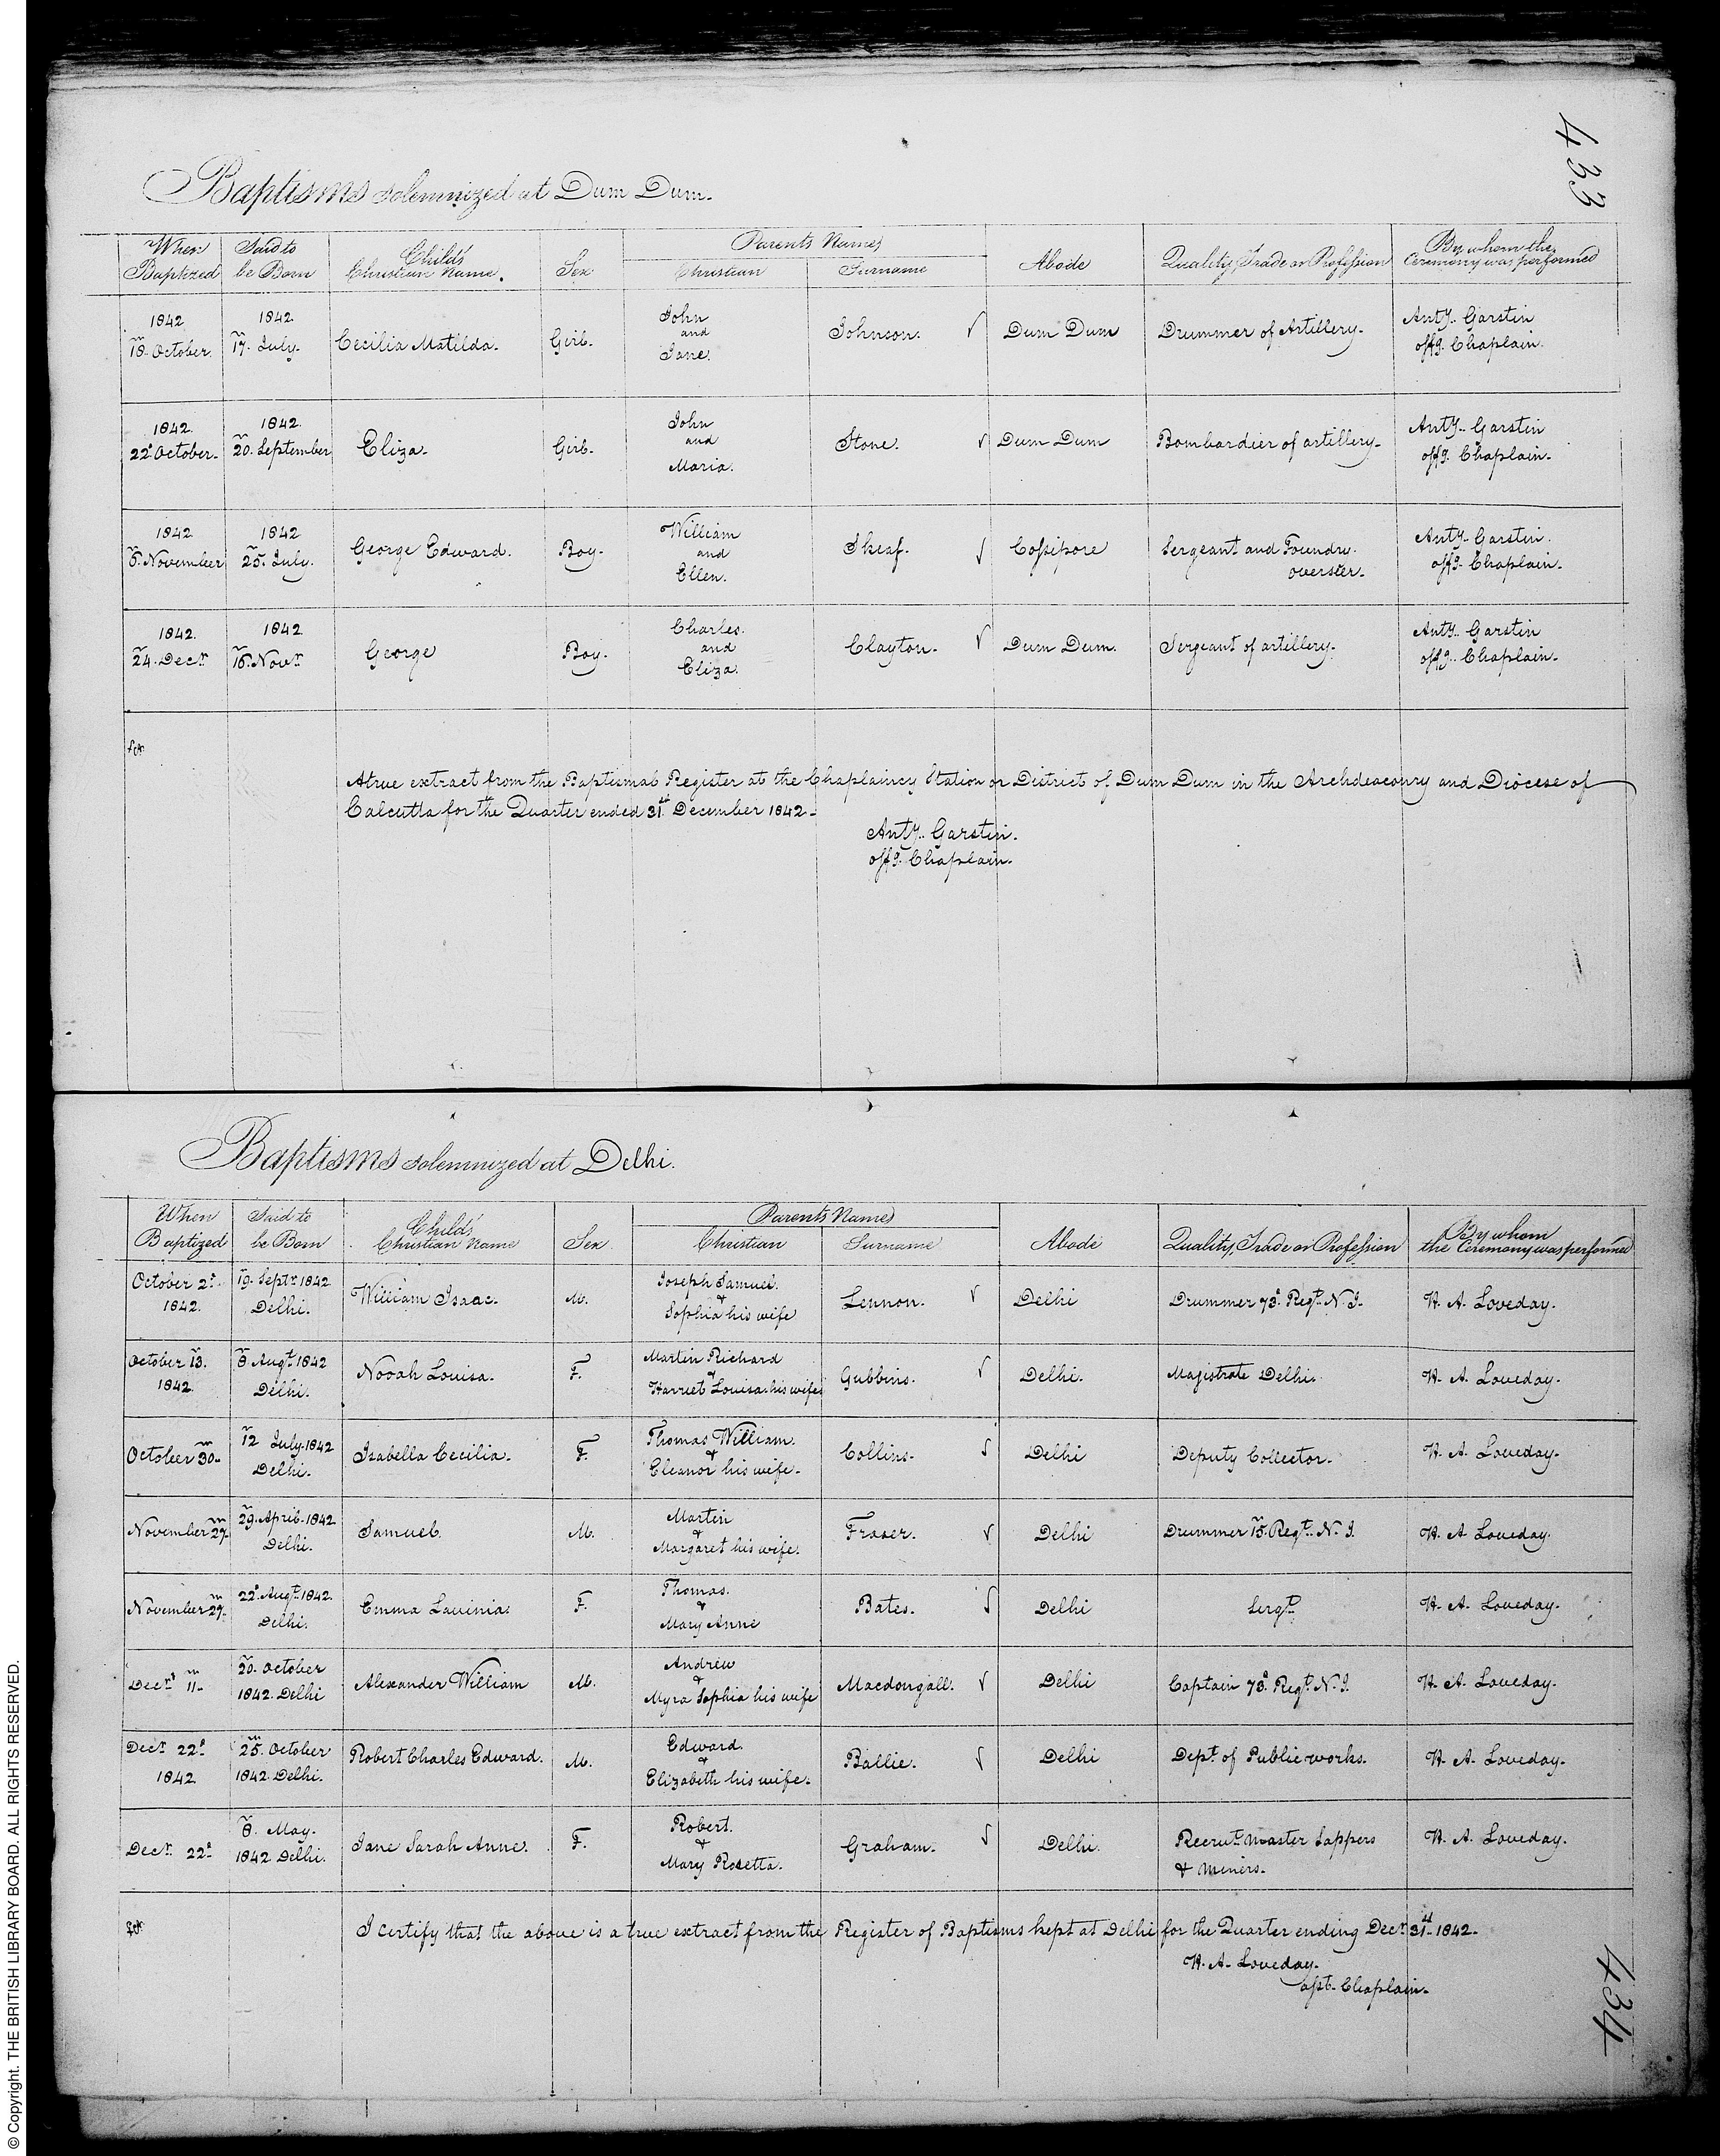 433
Baptisms solemnized at Dum Dum.
When Baptized | Said to be Born | Child's Christian Name. | Sex | Parents Names Christian | Surname | Abode | Quality, Trade or Profession | By whom the Ceremony was performed
1842 18th October. | 1842. 17th July. | Cecilia Matilda. | Girl. | John and Jane. | Johnson. √ | Dum Dum | Drummer of Artillery. | Anty. Garstin offg. Chaplain.
1842. 22d October. | 1842. 20th September | Eliza. | Girl. | John and Maria. | Stone. √ | Dum Dum | Bombardier of artillery. | Anty. Garstin offg. Chaplain.
1842 | 1842 25th July. | George Edward. | Boy. | William and Ellen. | Sheaf. √ | Cossipore | Sergeant and Foundry overseer. | Anty. Garstin. offg. Chaplain.
November
1842. 24th Decr. | 1842 16th Novr. | George | Boy. | Charles. and Eliza. | Clayton. √ | Dum Dum. | Sergeant of artillery. | Anty. Garstin offg. Chaplain.
A true extract from the Baptismal Register at the Chaplaincy Station or District of Dum Dum in the Archdeaconry and Diocese of
Calcutta for the Quarter ended 31st December 1842.
Anty. Garstin.
offg. Chaplain.
Baptisms solemnized at Delhi.
When Baptized | Said to be Born | Child's Christian Name | Sex | Parents Names Christian | Surname | Abode | Quality, Trade or Profession | By whom the Ceremony was performed
October 2d. 1842. | 19th Septr. 1842 Delhi. | William Isaac. | M. | Joseph Samuel. & Sophia his wife | Lennon. √ | Delhi | Drummer 73d. Regt. N. I. | H. A. Loveday.
October 13th. 1842. | 8th Augt. 1842 Delhi. | Norah Louisa. | F. | Martin Richard & Harriet Louisa his wife | Gubbins. √ | Delhi. | Magistrate Delhi. | H. A. Loveday.
October 30th. | 12th July. 1842 Delhi. | Isabella Cecilia. | F. | Thomas William. & Eleanor his wife. | Collins. √ | Delhi | Deputy Collector. | H. A. Loveday.
November 27th. | 29th April. 1842 Delhi. | Samuel. | M. | Martin & Margaret his wife. | Fraser. √ | Delhi | Drummer 15th Regt. N. I. | H. A. Loveday.
November 27th. | 22d Augt. 1842. Delhi. | Emma Lavinia. | F. | Thomas. & Mary Anne | Bates. √ | Delhi | Sergt. | H. A. Loveday.
Decr. 11th. | 20th October 1842. Delhi | Alexander William | M. | Andrew & Myra Sophia his wife | Macdougall. √ | Delhi | Captain 73d. Regt. N. I. | H. A. Loveday.
Decr. 22d. 1842 | 25th October 1842. Delhi. | Robert Charles Edward. | M. | Edward. & Elizabeth his wife. | Ballie. √ | Delhi | Dept. of Public works. | H. A. Loveday.
Decr. 22d. | 8th May. 1842 Delhi. | Jane Sarah Anne. | F. | Robert. & Mary Rosetta. | Graham. √ | Delhi. | Recrut. Master Sappers & Miners. | H. A. Loveday.
I certify that the above is a true extract from the Register of Baptisms kept at Delhi for the Quarter ending Decr. 31st. 1842.
H. A. Loveday.
asst. Chaplain.
434
© Copyright. THE BRITISH LIBRARY BOARD. ALL RIGHTS RESERVED.